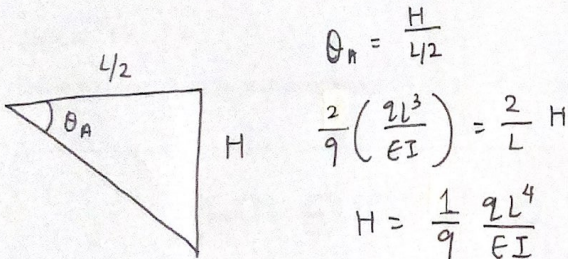 L/2
θ_A
H
θ_A = H / L/2
2/9 (qL³/EI) = 2/L H
H = 1/9 qL⁴/EI